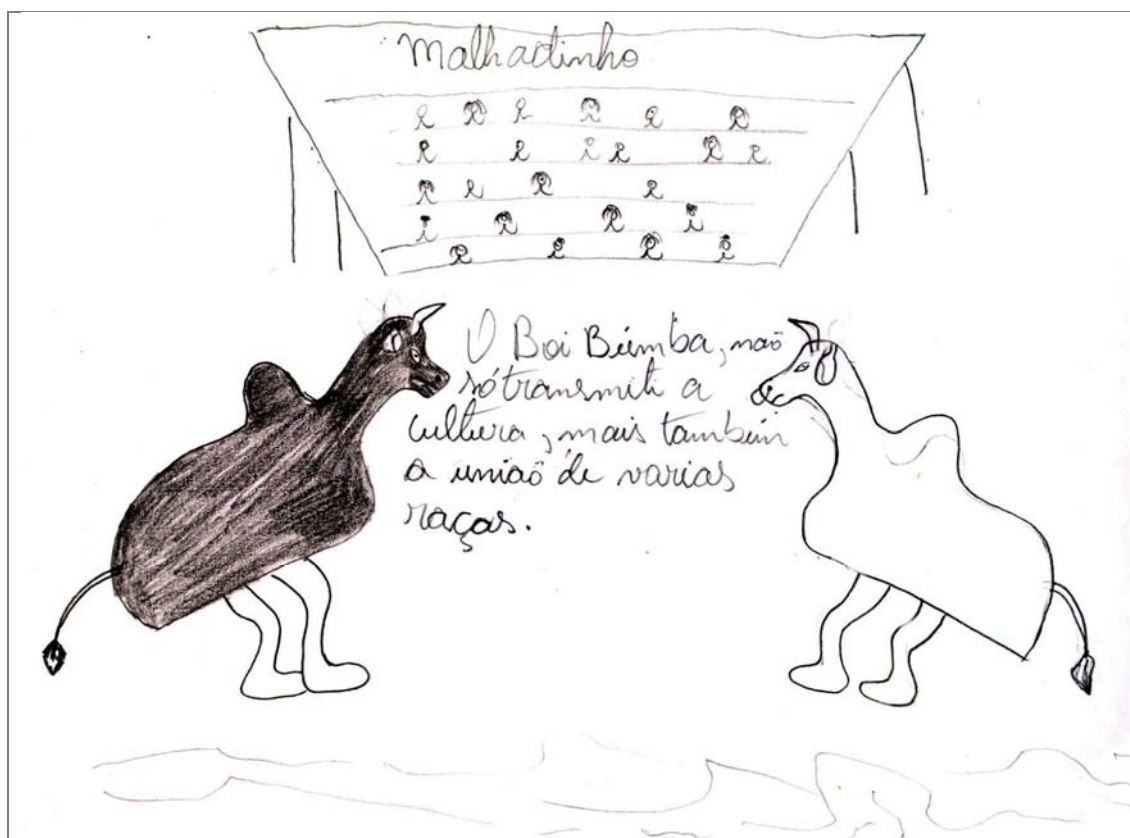 Malhadinho
O Boi Búmba, naõ
só transmiti a
cultura, mais tambúm
a uniaõ de varias
raças.